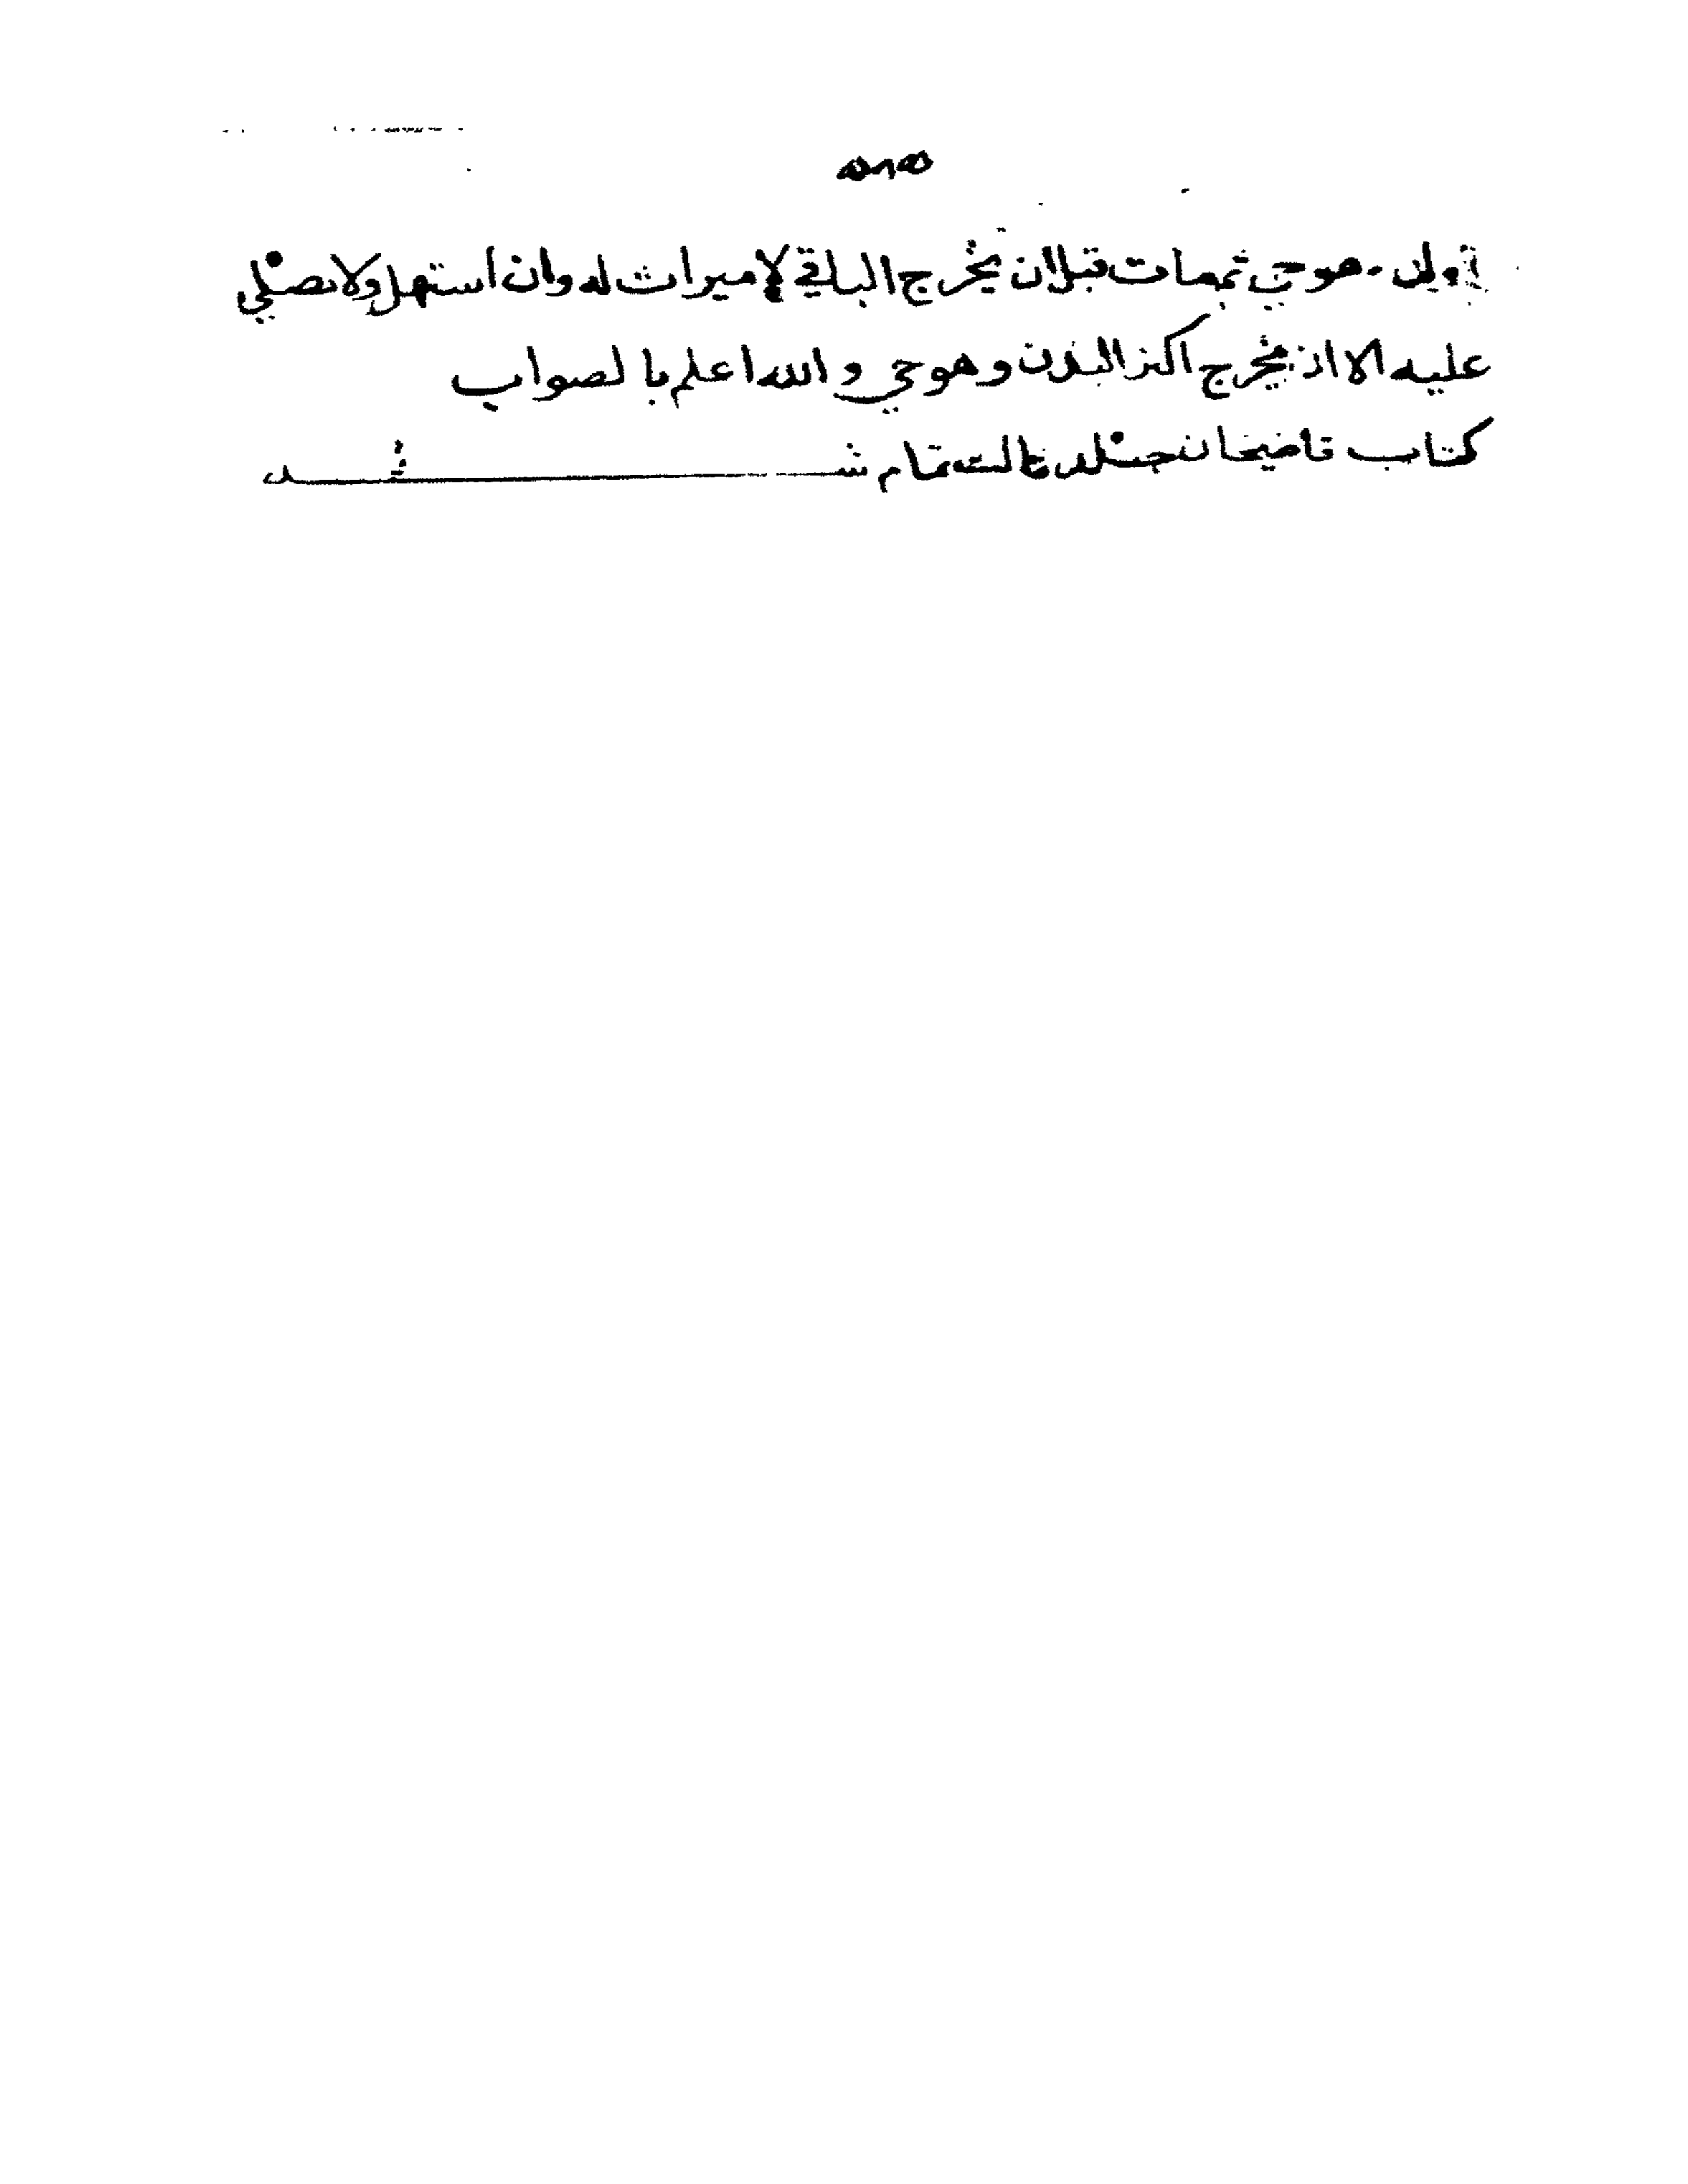 ولده وهو حي ثم مات قبل ان يخرج الباقي لا ميراث له وان استهل ولا يصلي
عليه الا ان يخرج اكثر البدن وهو حي والله اعلم بالصواب
كتاب قاضيخان جلد ثالث تمام شد